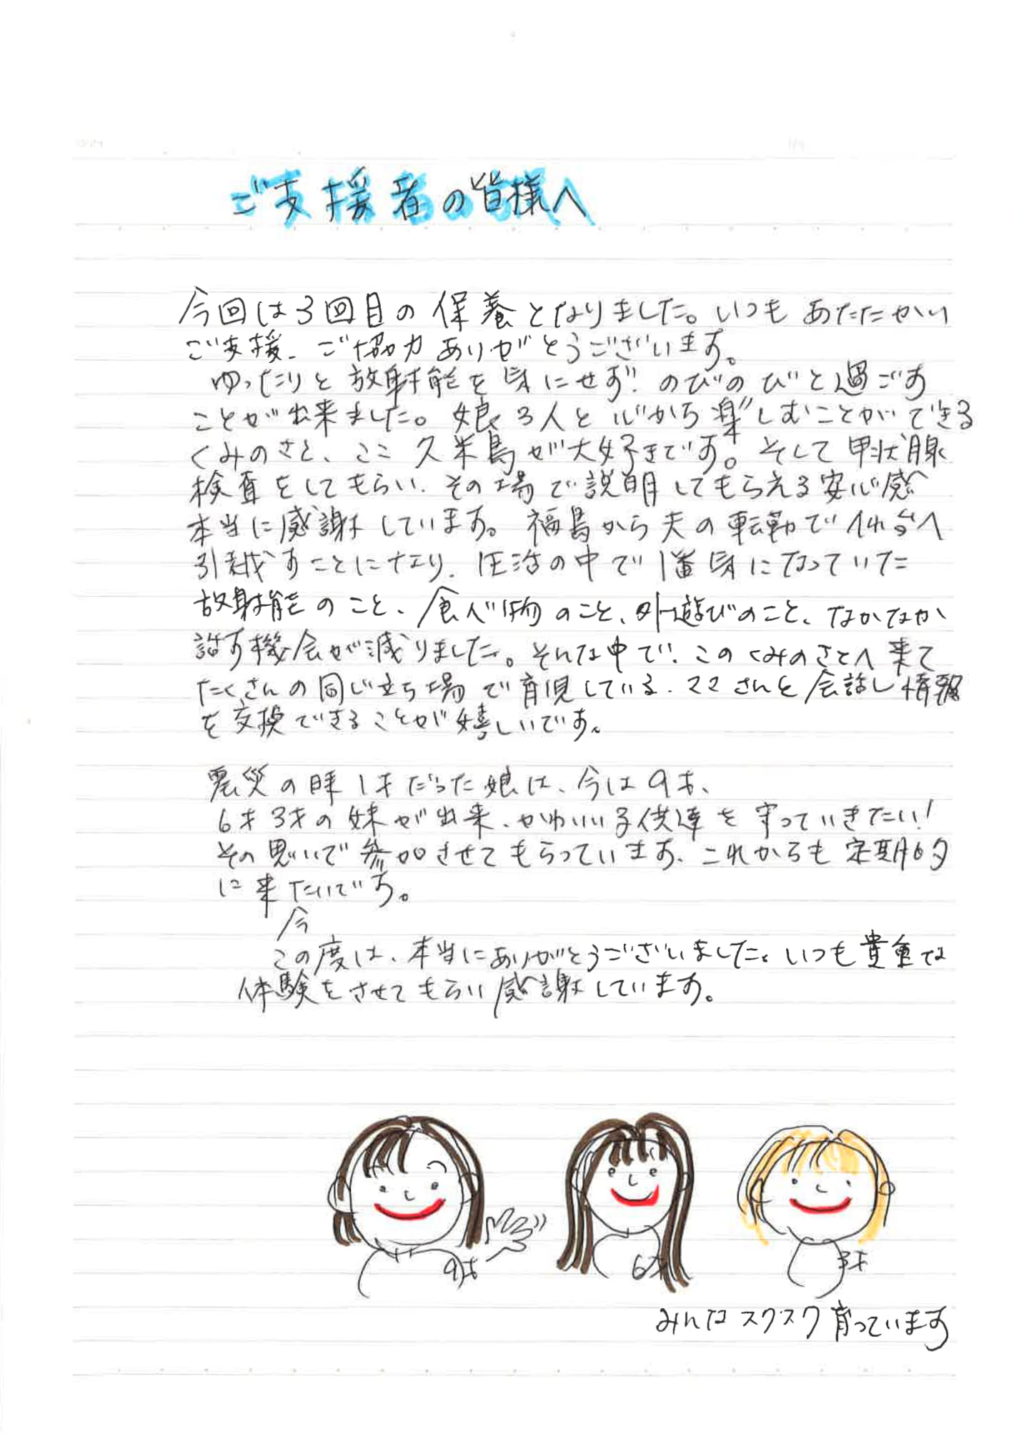 ご支援者の皆様へ
今回は3回目の保養となりました。いつもあたたかい
ご支援、ご協力ありがとうございます。
ゆったりと放射能を気にせず、のびのびと過ごす
ことが出来ました。娘3人と心から楽しむことができる
くみのさと、ここ久米島が大好きです。そして甲状腺
検査をしてもらい、その場で説明してもらえる安心感
本当に感謝しています。福島から夫の転勤で仙台へ
引越すことになり、生活の中で1番気になっていた
放射能のこと、食べ物のこと、外遊びのこと、なかなか
話す機会が減りました。そんな中で、このくみのさとへ来て
たくさんの同じ立ち場で育児している、ママさんと会話し情報
を交換できることが嬉しいです。
震災の時1才だった娘は、今は9才、
6才3才の妹が出来、かわいい子供達を守っていきたい!
その思いで参加させてもらっています、これからも定期的
に来たいです。
今
この度は、本当にありがとうございました。いつも貴重な
体験をさせてもらい感謝しています。
9才
6才
3才
みんなスクスク育っています